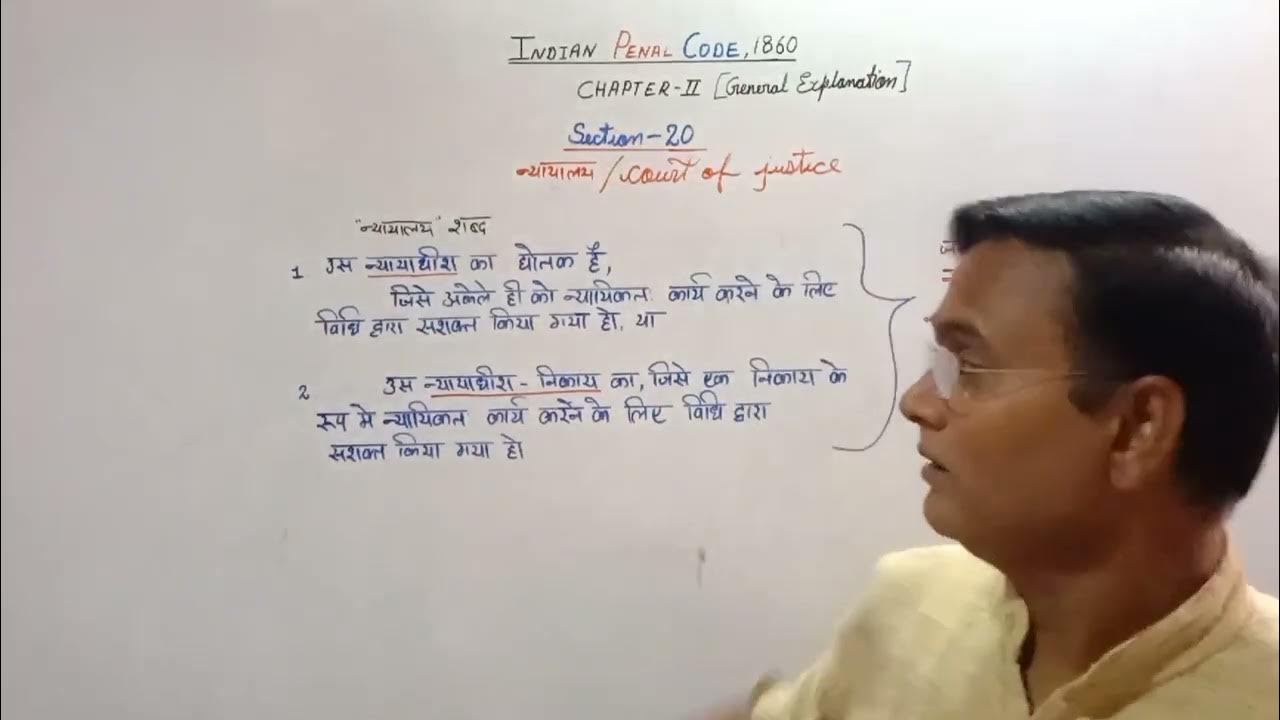 INDIAN PENAL CODE, 1860
CHAPTER-II [General Explanation]
Section-20
न्यायालय / court of justice
"न्यायालय" शब्द
1 उस न्यायाधीश का द्योतक है,
जिसे अकेले ही को न्यायिकत: कार्य करने के लिए
विधि द्वारा सशक्त किया गया हो, या
2 उस न्यायाधीश - निकाय का, जिसे एक निकाय के
रूप मे न्यायिकत कार्य करने के लिए विधि द्वारा
सशक्त किया गया हो